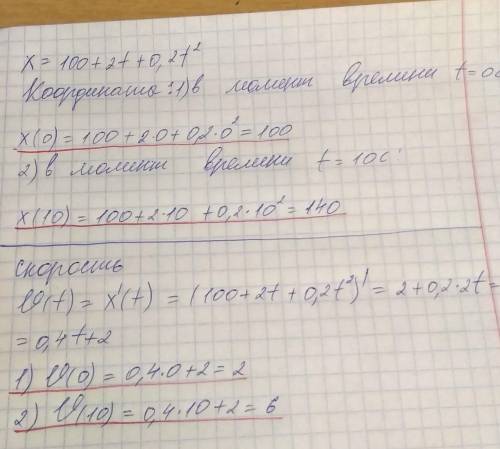 x = 100 + 2t + 0,2t²
Координаты: 1) в момент времени t=0с
x(0) = 100 + 2·0 + 0,2·0² = 100
2) в момент времени t = 10с
x(10) = 100 + 2·10 + 0,2·10² = 140
Скорость
v(t) = x'(t) = (100 + 2t + 0,2t²)' = 2 + 0,2·2t =
= 0,4t + 2
1) v(0) = 0,4·0 + 2 = 2
2) v(10) = 0,4·10 + 2 = 6